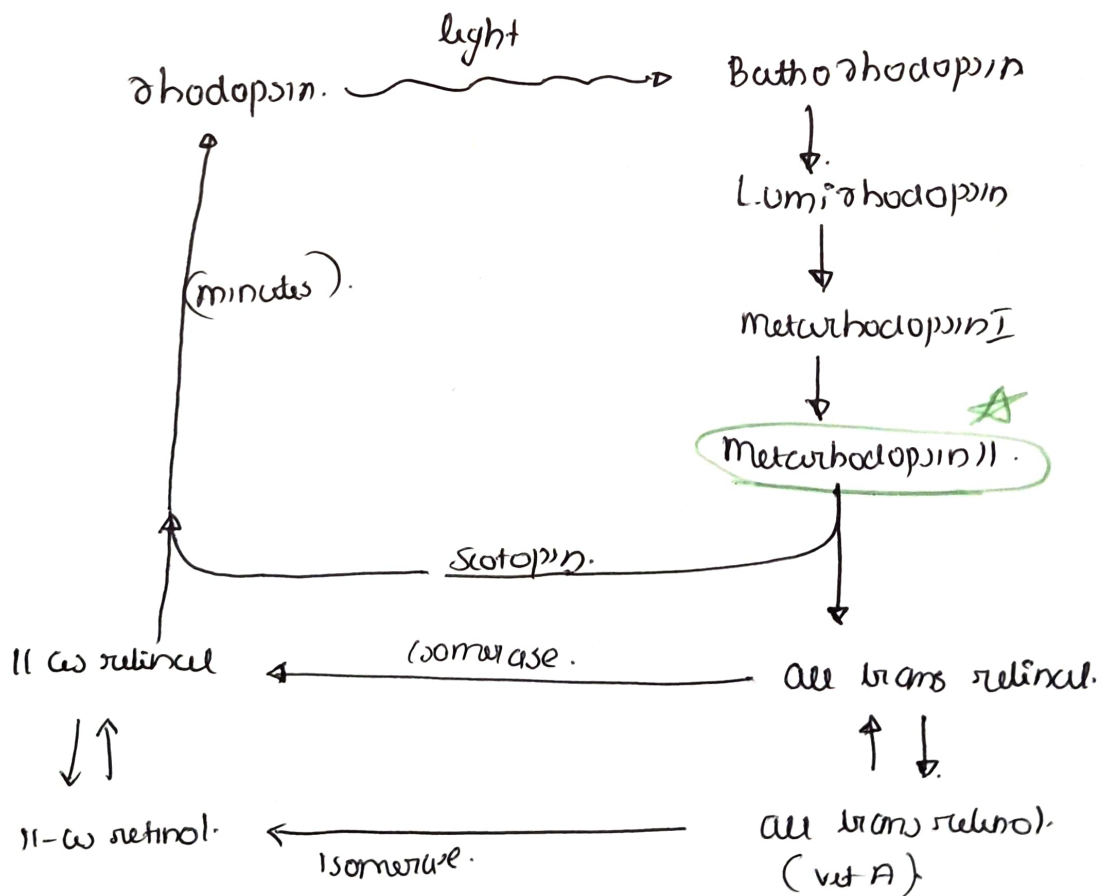 light
rhodopsin.
Bathorhodopsin
Lumirhodopsin
(minutes).
Metarhodopsin I
Metarhodopsin II.
Scotopsin.
11 cis retinal
isomerase.
all trans retinal.
11-cis retinol.
Isomerase.
all trans retinol.
(vit A)